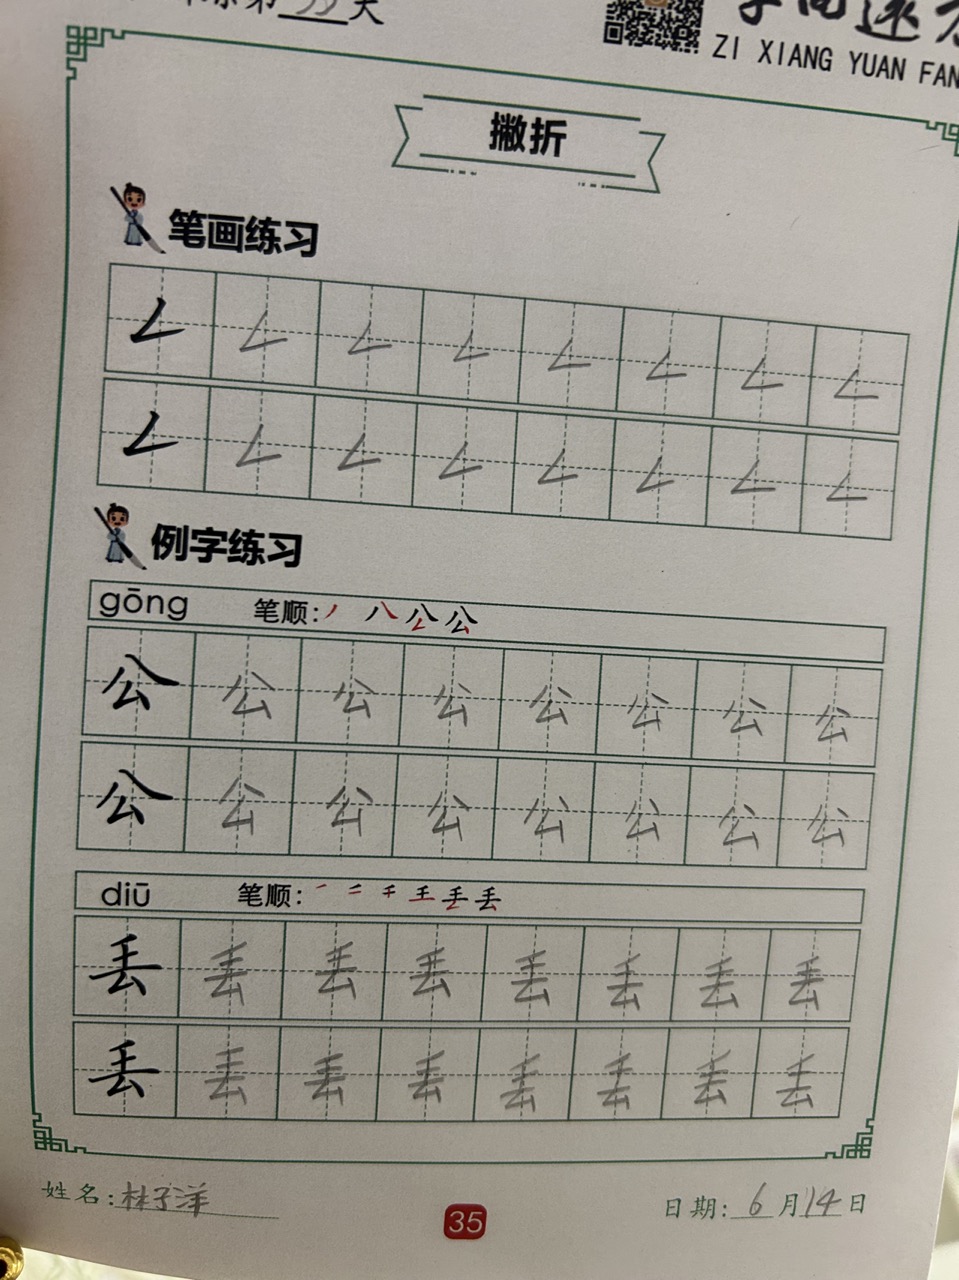 第35天
字向远方
ZI XIANG YUAN FAN
撇折
笔画练习
𠃋 𠃋 𠃋 𠃋 𠃋 𠃋 𠃋 𠃋
𠃋 𠃋 𠃋 𠃋 𠃋 𠃋 𠃋 𠃋
例字练习
gōng 笔顺: 丿 八 公 公
公 公 公 公 公 公 公 公
公 公 公 公 公 公 公 公
diū 笔顺: 一 二 千 王 丢 丢
丢 丢 丢 丢 丢 丢 丢 丢
丢 丢 丢 丢 丢 丢 丢 丢
姓名: 林子洋
35
日期: 6月14日